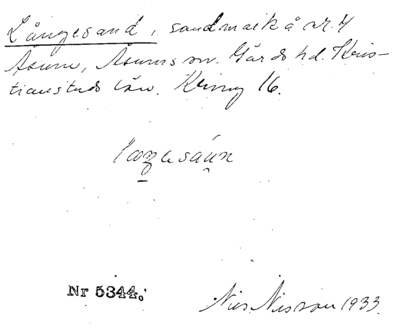 Långesand, sandmark å nr. 4
Åsum, Åsums sn. Gärds hd. Kris-
tianstads län. Kring 16.
Nr 5344.
Nils Nilsson 1933.